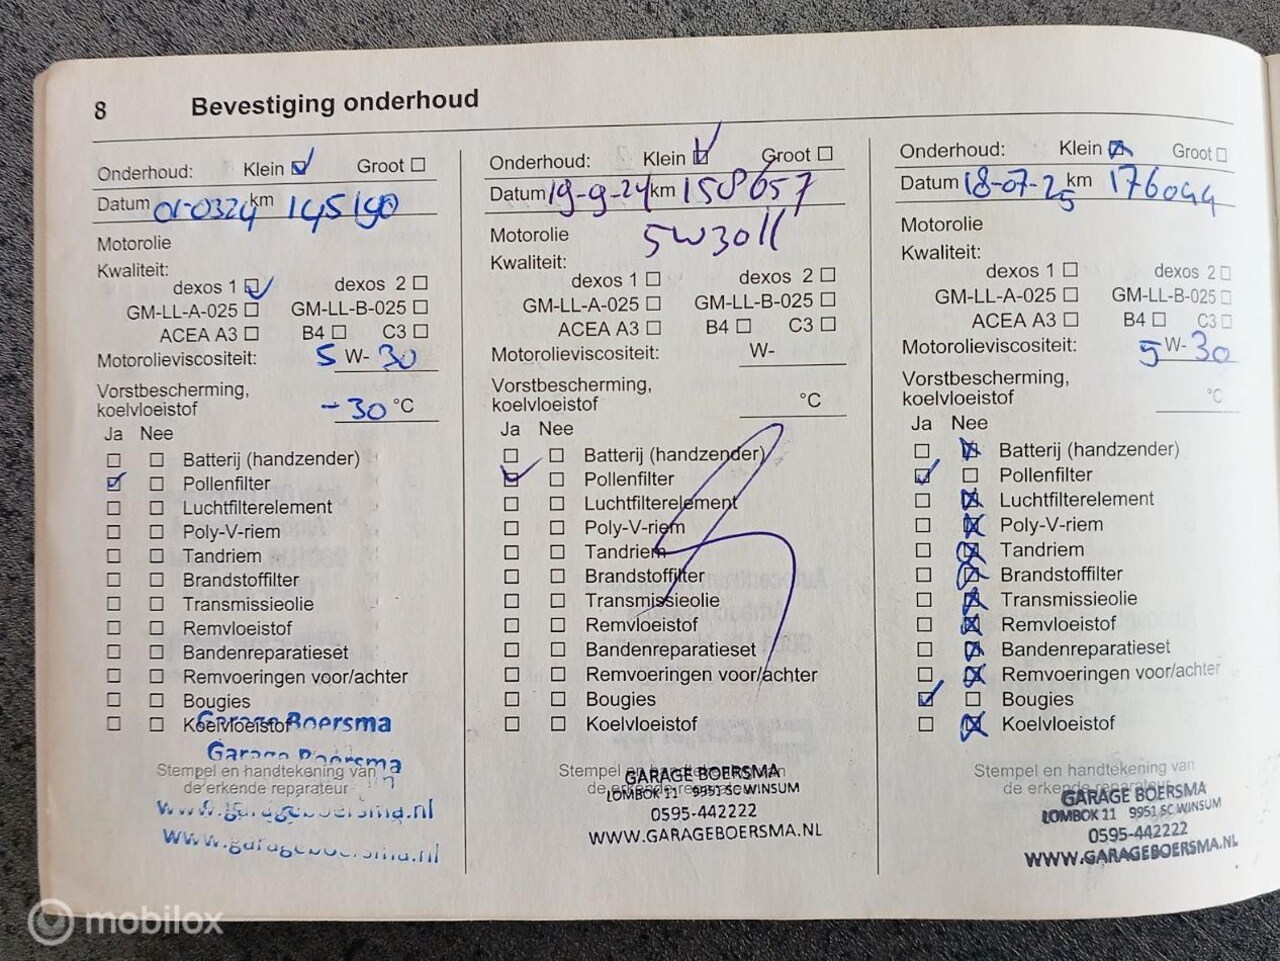 8 Bevestiging onderhoud
Onderhoud: Klein Groot
Datum 01-0324 km 145190
Motorolie
Kwaliteit:
dexos 1 dexos 2
GM-LL-A-025 GM-LL-B-025
ACEA A3 B4 C3
Motorolieviscositeit: 5 W- 30
Vorstbescherming,
koelvloeistof -30 °C
Ja Nee
Batterij (handzender)
Pollenfilter
Luchtfilterelement
Poly-V-riem
Tandriem
Brandstoffilter
Transmissieolie
Remvloeistof
Bandenreparatieset
Remvoeringen voor/achter
Bougies
Koelvloeistof
Garage Boersma
Garage Boersma
Stempel en handtekening van
de erkende reparateur
www.garageboersma.nl
www.garageboersma.nl
Onderhoud: Klein Groot
Datum 19-9-24 km 158657
Motorolie 5W30ll
Kwaliteit:
dexos 1 dexos 2
GM-LL-A-025 GM-LL-B-025
ACEA A3 B4 C3
Motorolieviscositeit: W-
Vorstbescherming,
koelvloeistof °C
Ja Nee
Batterij (handzender)
Pollenfilter
Luchtfilterelement
Poly-V-riem
Tandriem
Brandstoffilter
Transmissieolie
Remvloeistof
Bandenreparatieset
Remvoeringen voor/achter
Bougies
Koelvloeistof
Stempel en handtekening van
de erkende reparateur
GARAGE BOERSMA
LOMBOK 11 9951 SC WINSUM
0595-442222
WWW.GARAGEBOERSMA.NL
Onderhoud: Klein Groot
Datum 18-07-25 km 176044
Motorolie
Kwaliteit:
dexos 1 dexos 2
GM-LL-A-025 GM-LL-B-025
ACEA A3 B4 C3
Motorolieviscositeit: 5 W- 30
Vorstbescherming,
koelvloeistof °C
Ja Nee
Batterij (handzender)
Pollenfilter
Luchtfilterelement
Poly-V-riem
Tandriem
Brandstoffilter
Transmissieolie
Remvloeistof
Bandenreparatieset
Remvoeringen voor/achter
Bougies
Koelvloeistof
Stempel en handtekening van
de erkende reparateur
GARAGE BOERSMA
LOMBOK 11 9951 SC WINSUM
0595-442222
WWW.GARAGEBOERSMA.NL
mobilox